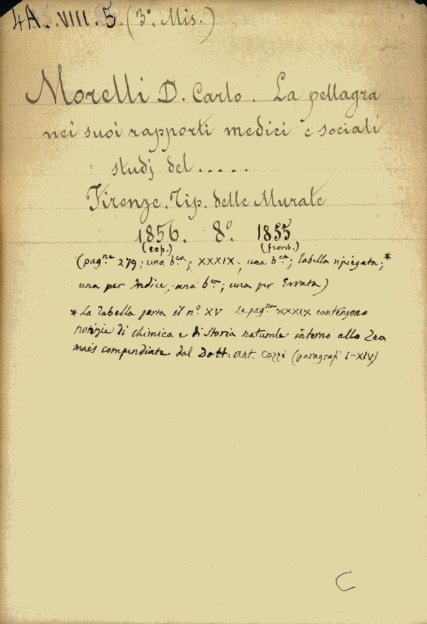 4A. VIII. 5. (3º Mis.)
Morelli D. Carlo. La pellagra
nei suoi rapporti medici e sociali
studj del.....
Firenze. Tip. delle Murate
1856. 8º. 1855
(cop.) (front.)
(pag.ne 279; una b.ca; XXXIX; una b.ca; Tabella ripiegata;*
una per Indice; una b.ca; una per Errata)
* La Tabella porta il nº XV. Le pag.ne XXXIX contengono
notizie di chimica e di storia naturale intorno allo Zea
maïs compendiate dal Dott. Ant. Cozzi (paragrafi I-XIV)
C